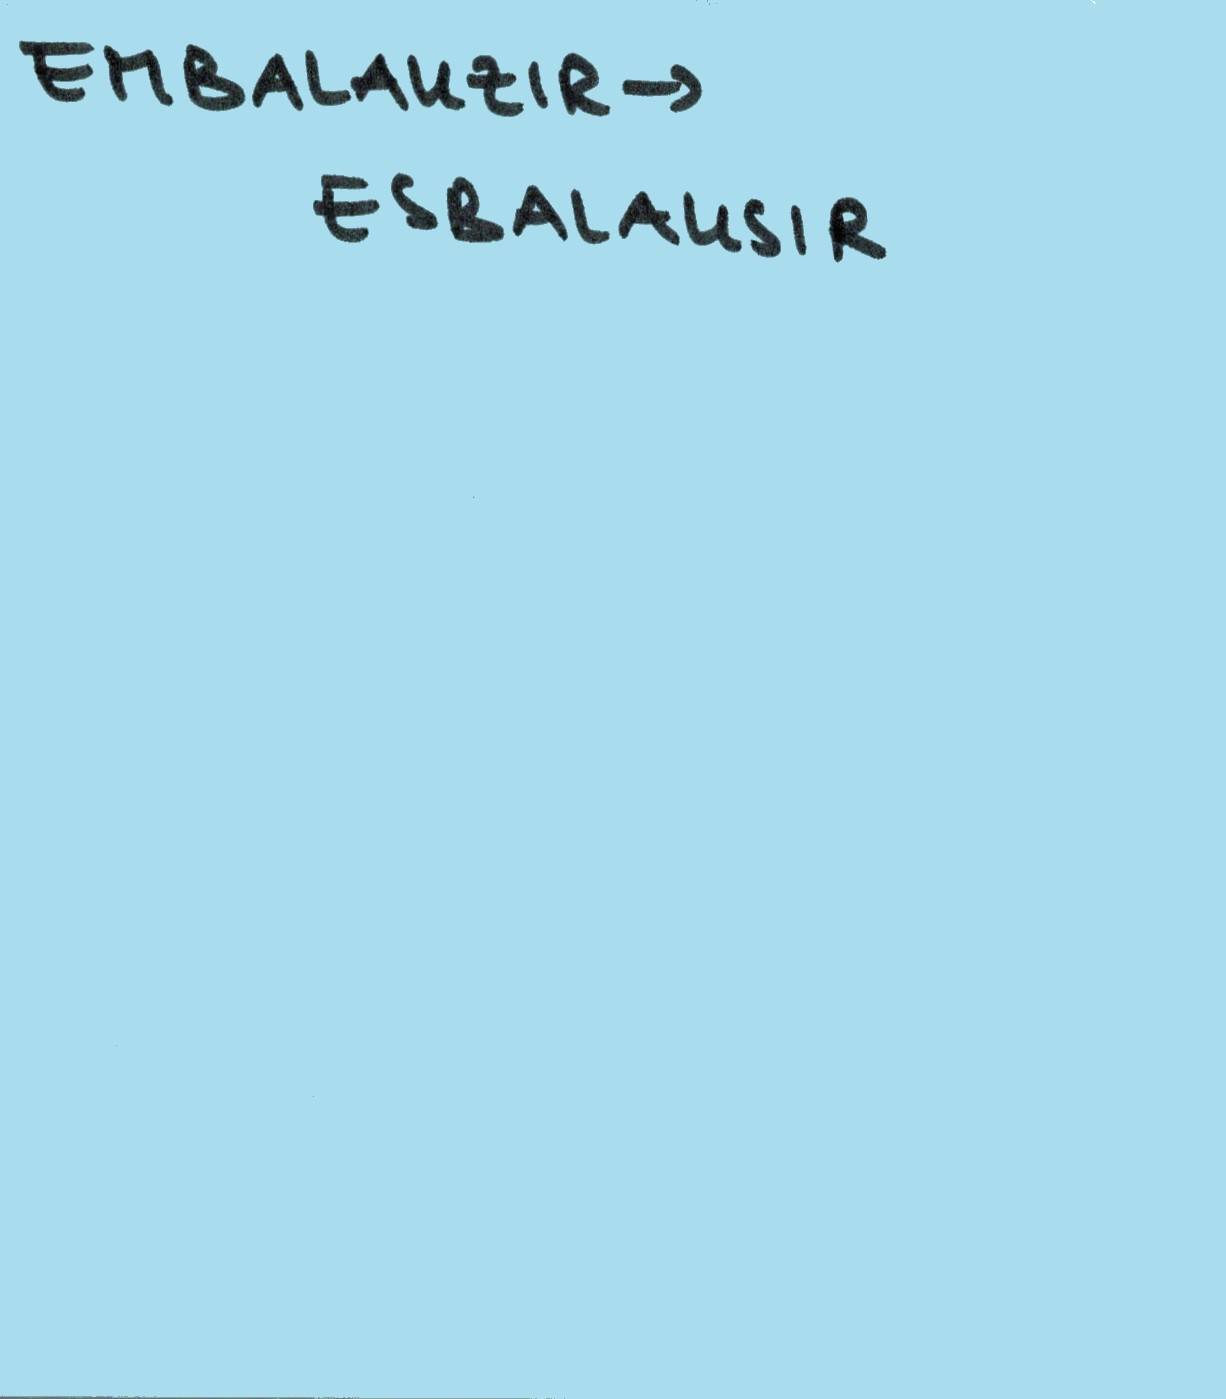 EMBALAUZIR →
ESBALAUSIR